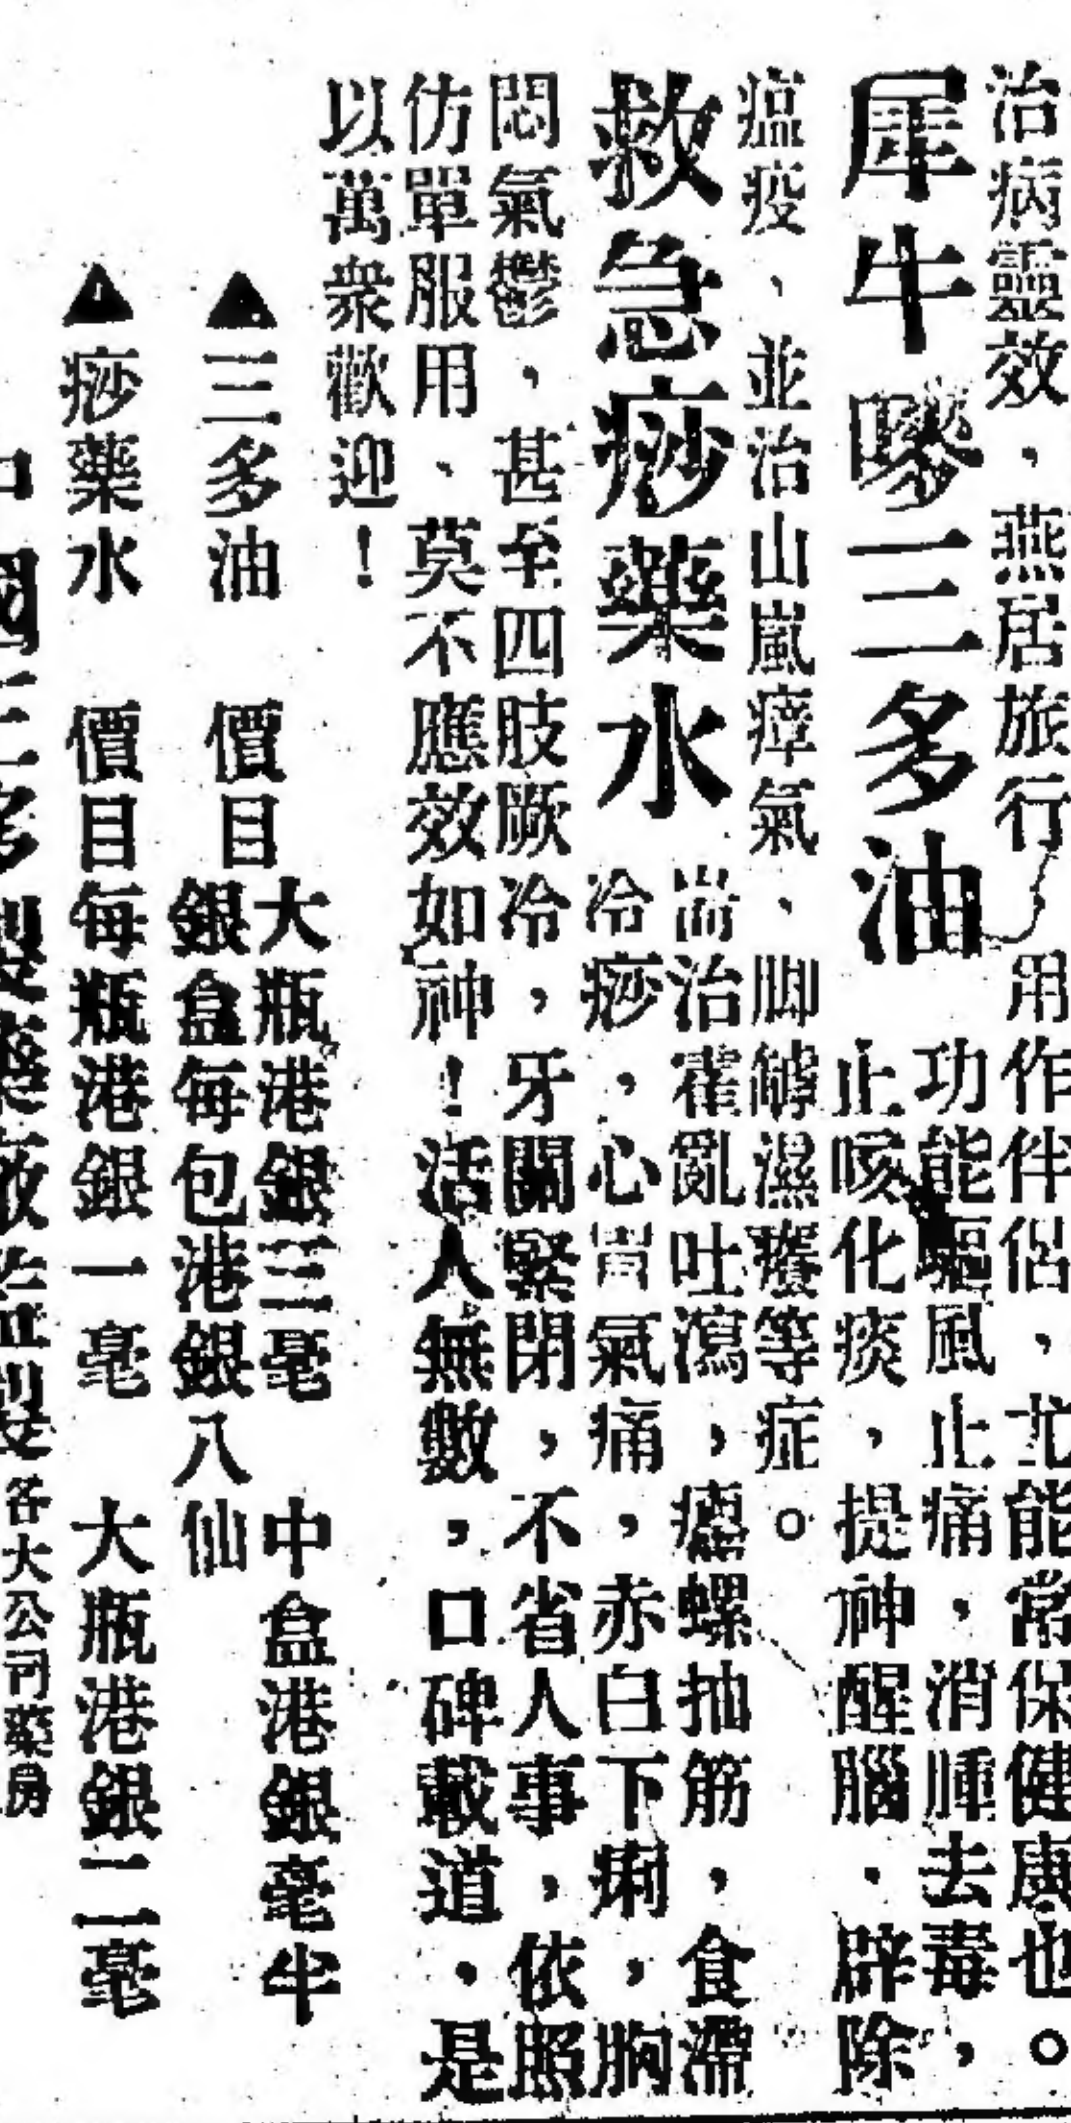 治病靈效，燕居旅行，用作伴侶，尤能常保健康也。
犀牛嘜三多油
功能驅風止痛，消腫去毒，
止咳化痰，提神醒腦．辟除
瘟疫、並治山嵐瘴氣、脚罅濕癢等症。
救急痧藥水
耑治霍亂吐瀉，癟螺抽筋，食滯
冷痧，心胃氣痛，赤白下痢，胸
悶氣鬱，甚至四肢厥冷，牙關緊閉，不省人事，依照
仿單服用、莫不應效如神！活人無數，口碑載道．是
以萬衆歡迎！
▲三多油 價目
大瓶港銀三毫 中盒港銀毫半
銀盒每包港銀八仙
▲痧藥水 價目每瓶港銀一毫 大瓶港銀二毫
中國三多製藥廠監製各大公司藥房